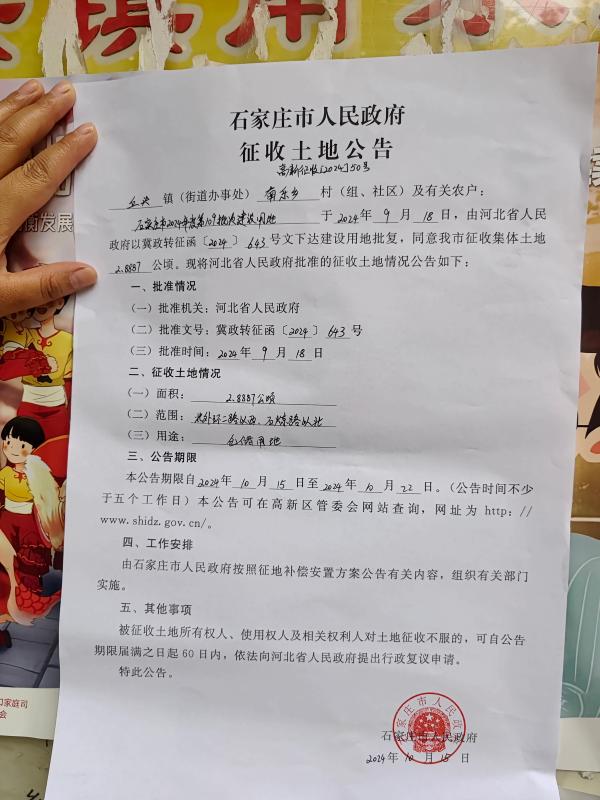 石家庄市人民政府
征收土地公告
高新征收[2024]50号
丘头 镇（街道办事处） 南乐乡 村（组、社区）及有关农户：
石家庄市2024年度第109批次建设用地 于 2024年 9 月 18 日，由河北省人民
政府以冀政转征函〔2024〕643号文下达建设用地批复，同意我市征收集体土地
2.8887 公顷。现将河北省人民政府批准的征收土地情况公告如下：
一、批准情况
（一）批准机关：河北省人民政府
（二）批准文号：冀政转征函〔2024〕643号
（三）批准时间：2024年 9 月 18 日
二、征收土地情况
（一）面积： 2.8887公顷
（二）范围： 外环二路以西、石炼路以北
（三）用途： 仓储用地
三、公告期限
本公告期限自2024年 10 月 15 日至2024年 10 月 22 日。（公告时间不少
于五个工作日）本公告可在高新区管委会网站查询，网址为 http：//
www.shidz.gov.cn/。
四、工作安排
由石家庄市人民政府按照征地补偿安置方案公告有关内容，组织有关部门
实施。
五、其他事项
被征收土地所有权人、使用权人及相关权利人对土地征收不服的，可自公告
期限届满之日起 60日内，依法向河北省人民政府提出行政复议申请。
特此公告。
石家庄市人民政府
2024年 10 月 15 日